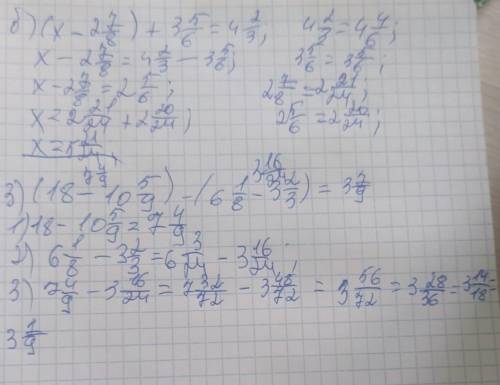 б) (x - 2 7/8) + 3 5/6 = 4 2/3; 4 2/3 = 4 4/6;
x - 2 7/8 = 4 2/3 - 3 5/6; 3 5/6 = 3 5/6;
x - 2 7/8 = 2 5/6; 2 7/8 = 2 21/24;
x = 2 21/24 + 2 20/24; 2 5/6 = 2 20/24;
x = 5
3) (18 - 10 5/9) - (6 1/8 - 3 2/3) = 3 7/9
1) 18 - 10 5/9 = 7 4/9
2) 6 1/8 - 3 2/3 = 6 3/24 - 3 16/24;
3) 7 4/9 - 3 16/24 = 7 32/72 - 3 48/72 = 3 56/72 = 3 28/36 = 3 14/18 =